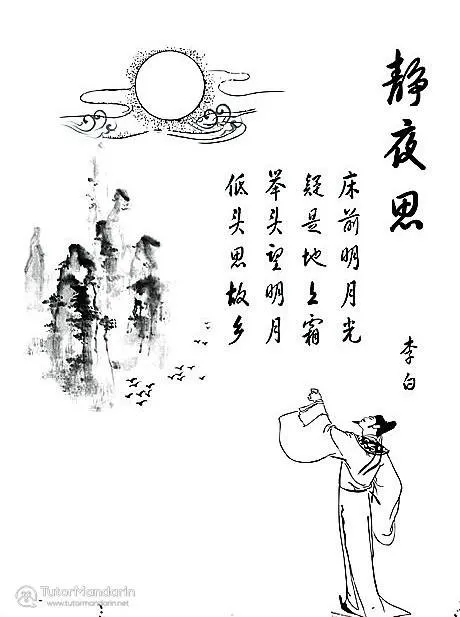 静夜思
李白
床前明月光
疑是地上霜
举头望明月
低头思故乡
TutorMandarin
www.tutormandarin.net